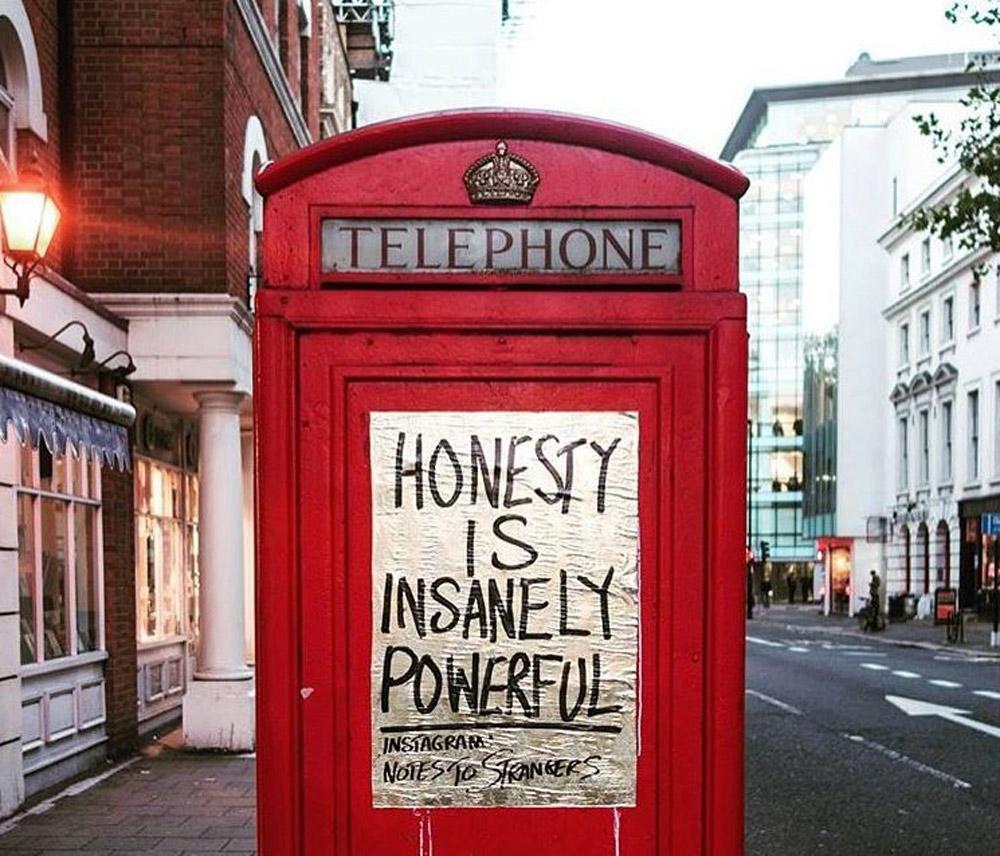 TELEPHONE
HONESTY
IS
INSANELY
POWERFUL
INSTAGRAM:
NOTES TO STRANGERS